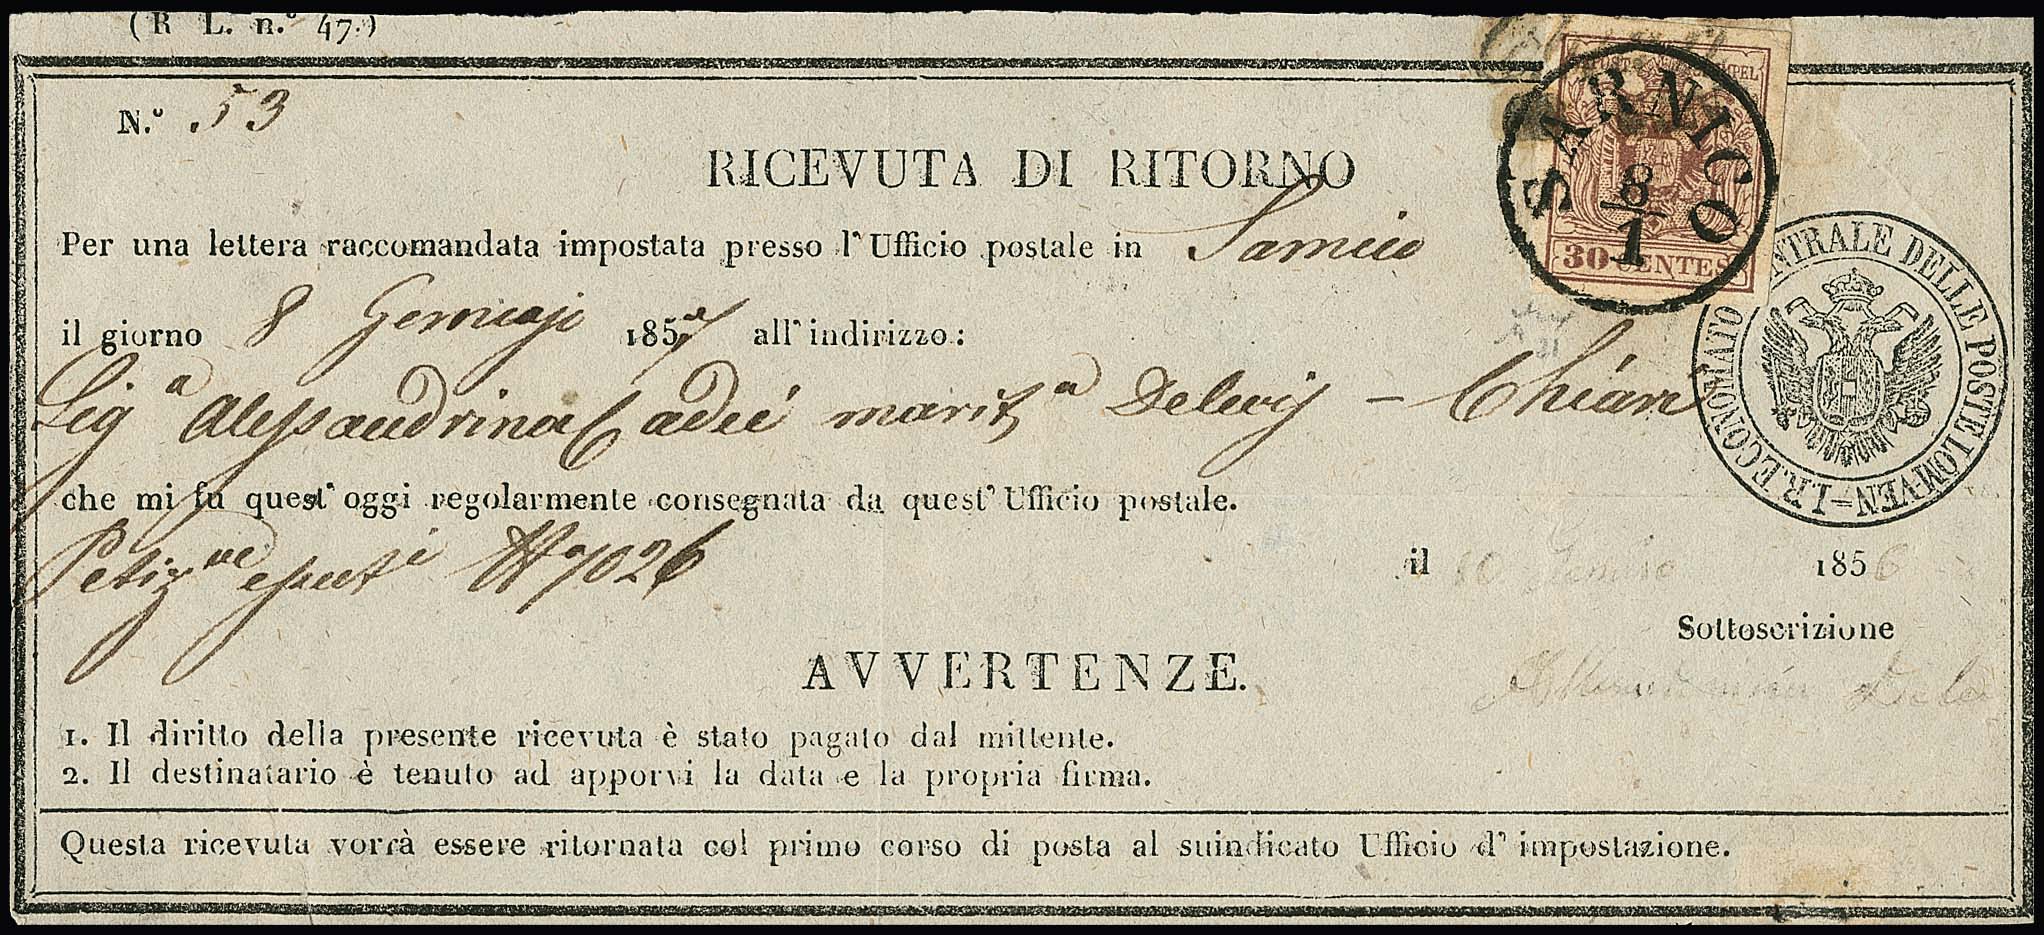 (R L. n.º 47.)
N.º 53
RICEVUTA DI RITORNO
Per una lettera raccomandata impostata presso l'Ufficio postale in Sarnico
il giorno 8 Gennajo 1857 all'indirizzo:
Sigª Alessandrina Cadei maritª Delevij - Chiari
che mi fu quest'oggi regolarmente consegnata da quest'Ufficio postale.
7026
il 10 1856
Sottoscrizione
AVVERTENZE.
1. Il diritto della presente ricevuta è stato pagato dal mittente.
2. Il destinatario è tenuto ad apporvi la data e la propria firma.
Questa ricevuta vorrà essere ritornata col primo corso di posta al suindicato Ufficio d'impostazione.
SARNICO
8
1
30 CENTES
I.R. ECONOMATO CENTRALE DELLE POSTE LOM-VEN=